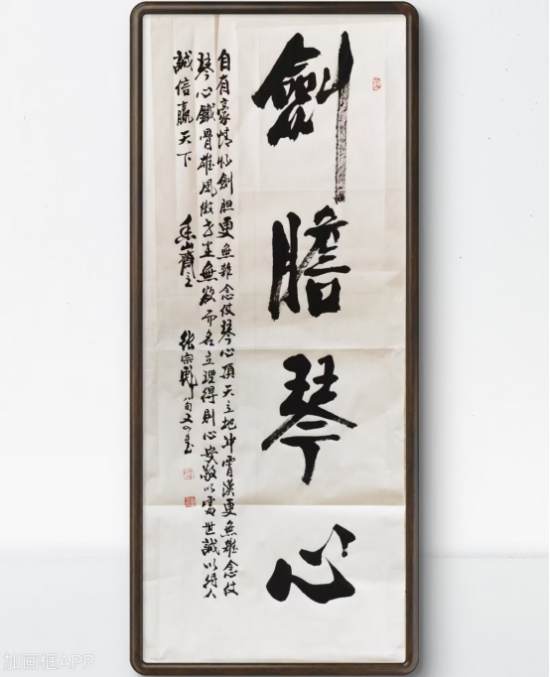 劍膽琴心
自有豪情 劍胆更無雜念仗琴心頂天立地冲霄漢更無雜念仗
琴心鐵骨雄風 無欲而名立理得則心安敬以 世誠以待人
誠信贏天下 香山齋主 張宗彪
加画框APP